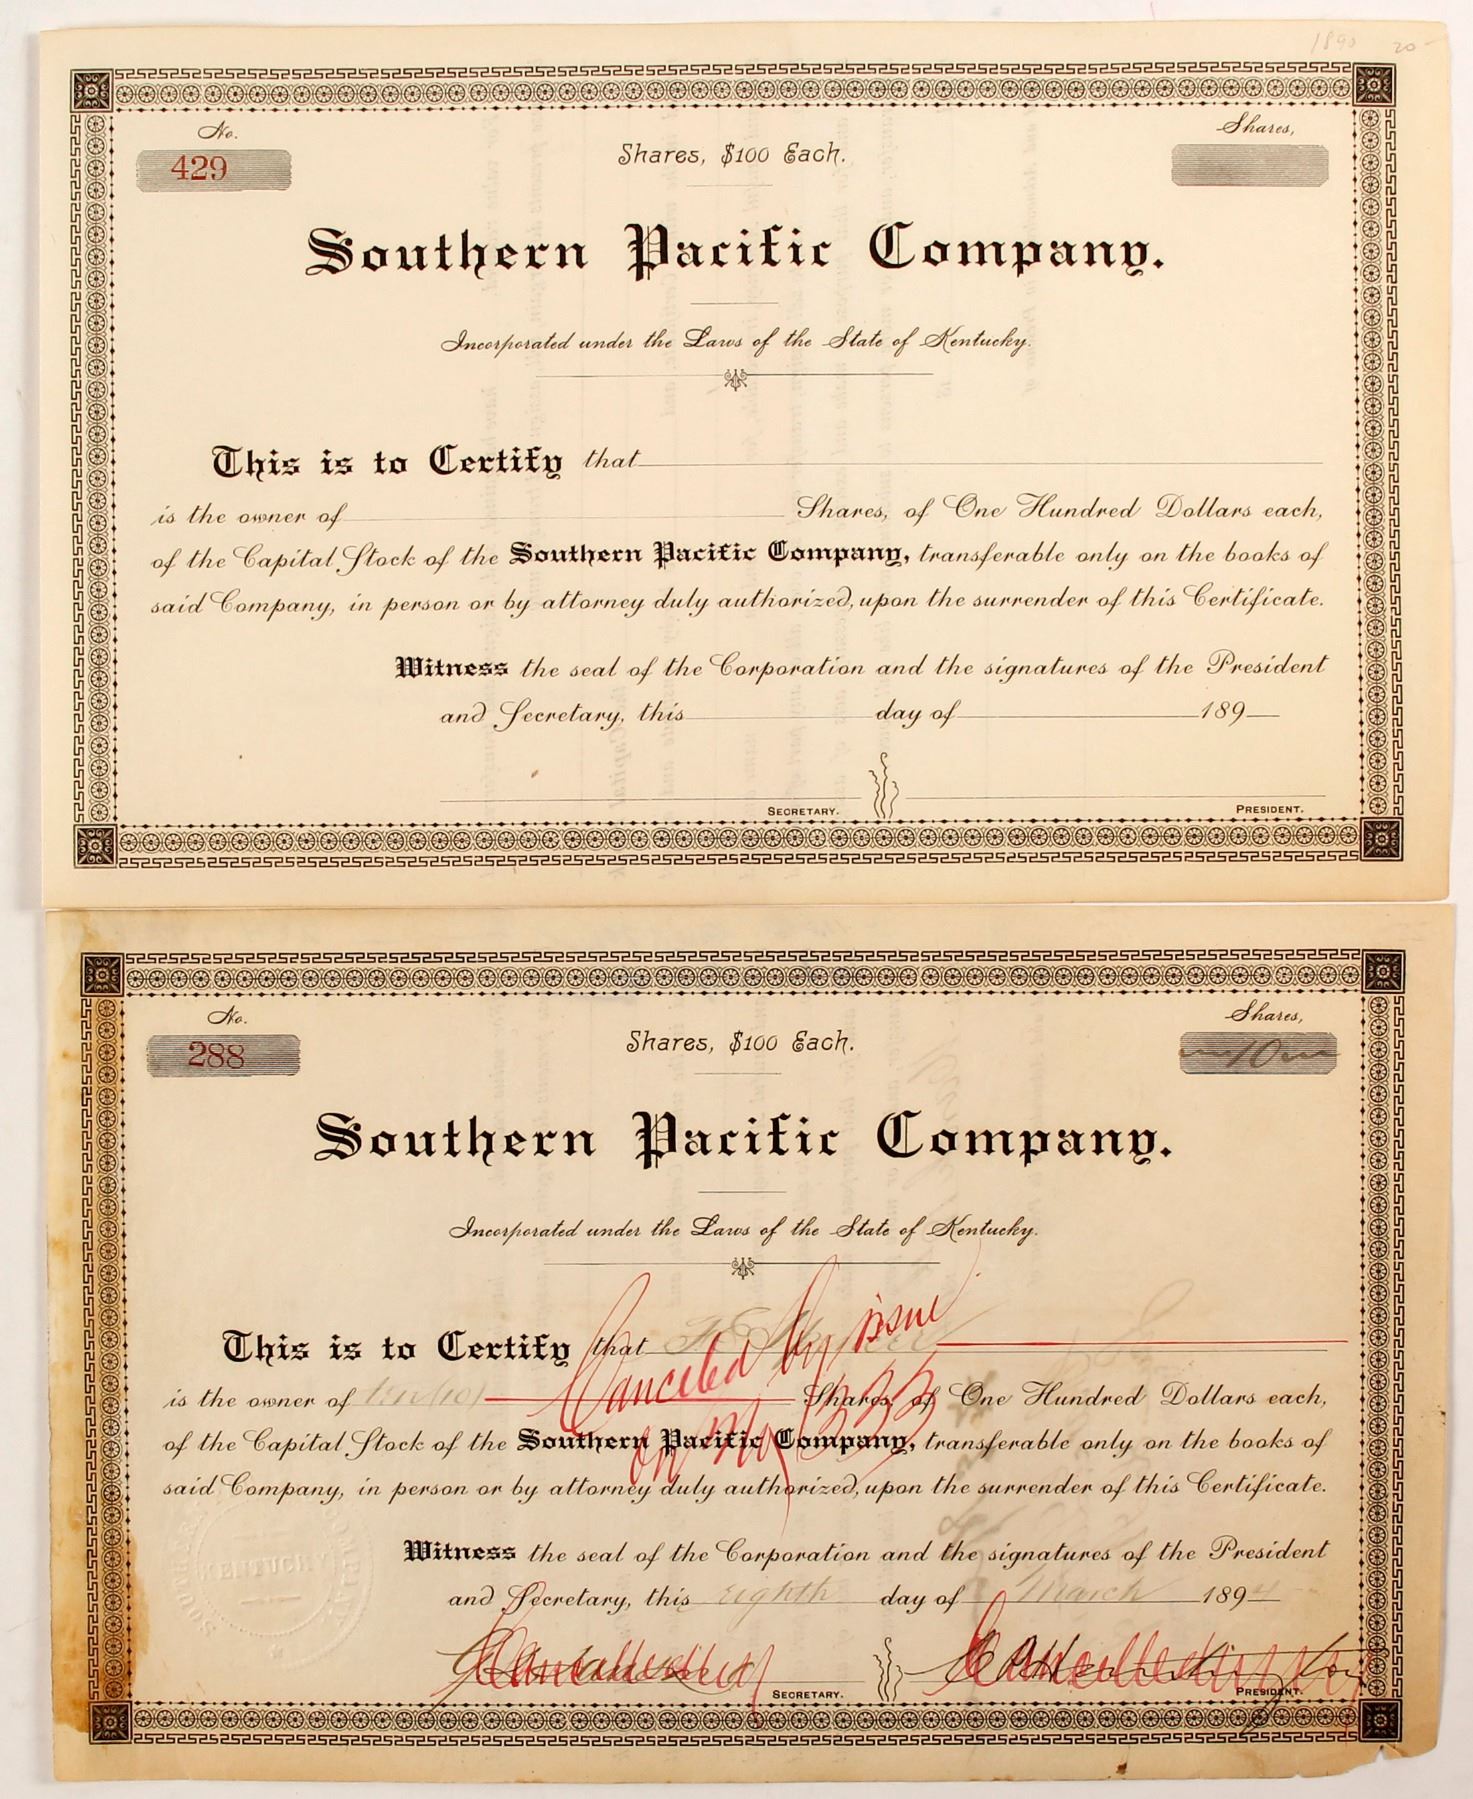 1890 20-
No. Shares,
429 Shares, $100 Each.
Southern Pacific Company.
Incorporated under the Laws of the State of Kentucky.
This is to Certify that
is the owner of Shares, of One Hundred Dollars each,
of the Capital Stock of the Southern Pacific Company, transferable only on the books of
said Company, in person or by attorney duly authorized, upon the surrender of this Certificate.
Witness the seal of the Corporation and the signatures of the President
and Secretary, this day of 189
SECRETARY. PRESIDENT.
No. Shares,
288 Shares, $100 Each. 10
Southern Pacific Company.
Incorporated under the Laws of the State of Kentucky.
This is to Certify that
Canceled by issue
is the owner of ten (10) Shares, of One Hundred Dollars each,
on No 333
of the Capital Stock of the Southern Pacific Company, transferable only on the books of
said Company, in person or by attorney duly authorized, upon the surrender of this Certificate.
Witness the seal of the Corporation and the signatures of the President
KENTUCKY
and Secretary, this eighth day of March 1894
Cancelled Cancelled
SECRETARY. PRESIDENT.